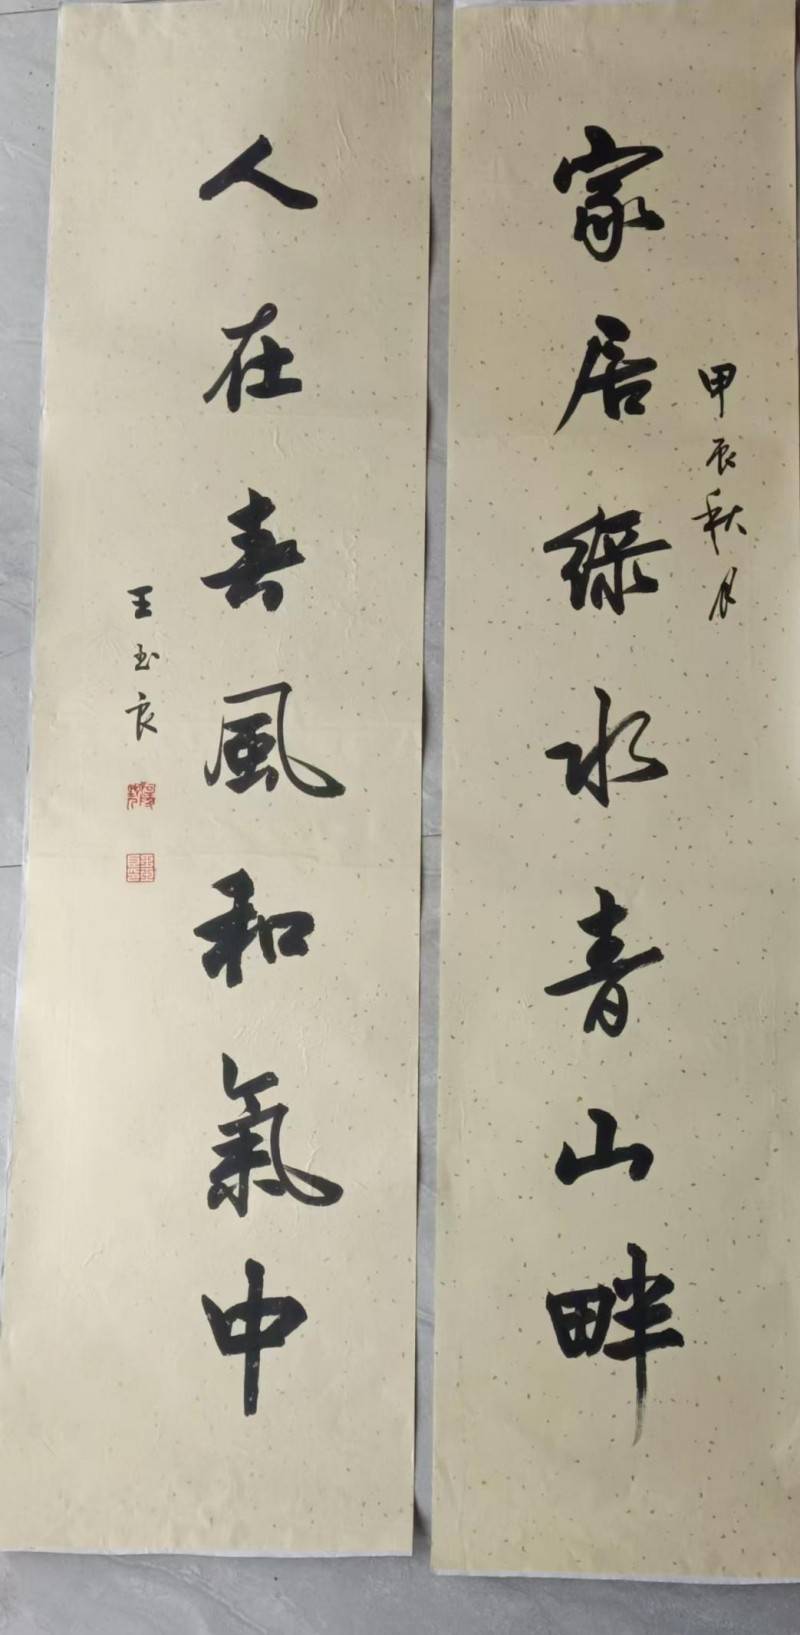 家居绿水青山畔
甲辰秋月
人在春風和氣中
王玉良